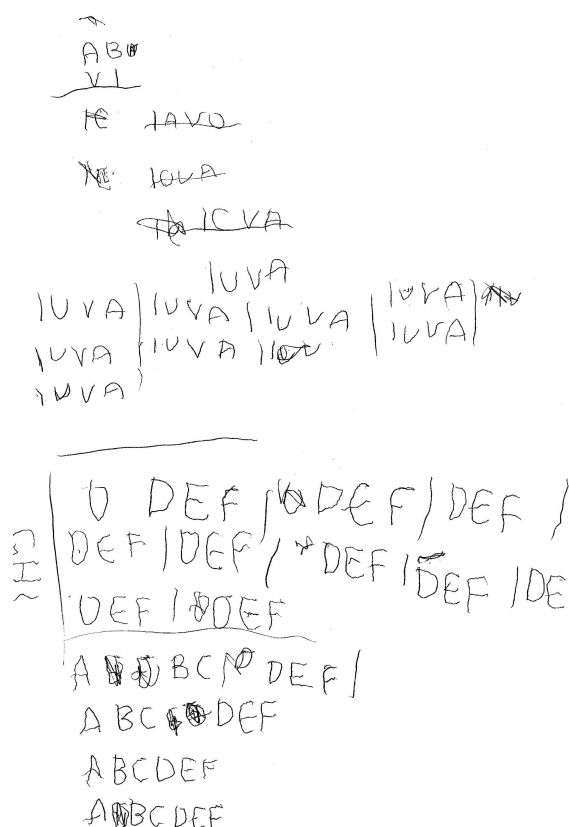 AB
VI
IAVO
IOVA
ICVA
IUVA
IUVA IUVA | IUVA | IUVA |
IUVA | IUVA | IUVA
IUVA
O DEF / DEF / DEF /
DEF / DEF / DEF / DEF / DE
DEF / DEF
GHI
A BC DEF /
ABC DEF
ABCDEF
A BCDEF